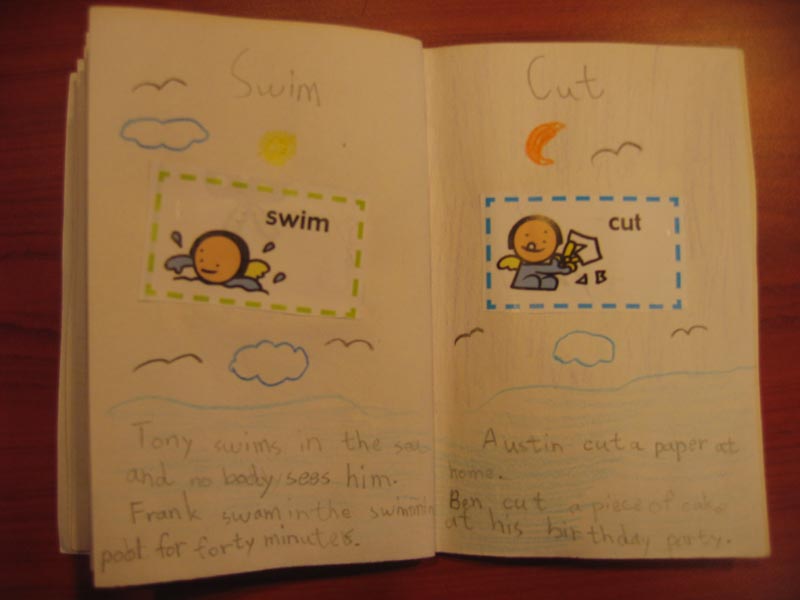 Swim
swim
Tony swims in the sea
and no body sees him.
Frank swam in the swimmin
pool for forty minutes.
Cut
cut
A B
Austin cut a paper at
home.
Ben cut a piece of cake
at his birthday party.